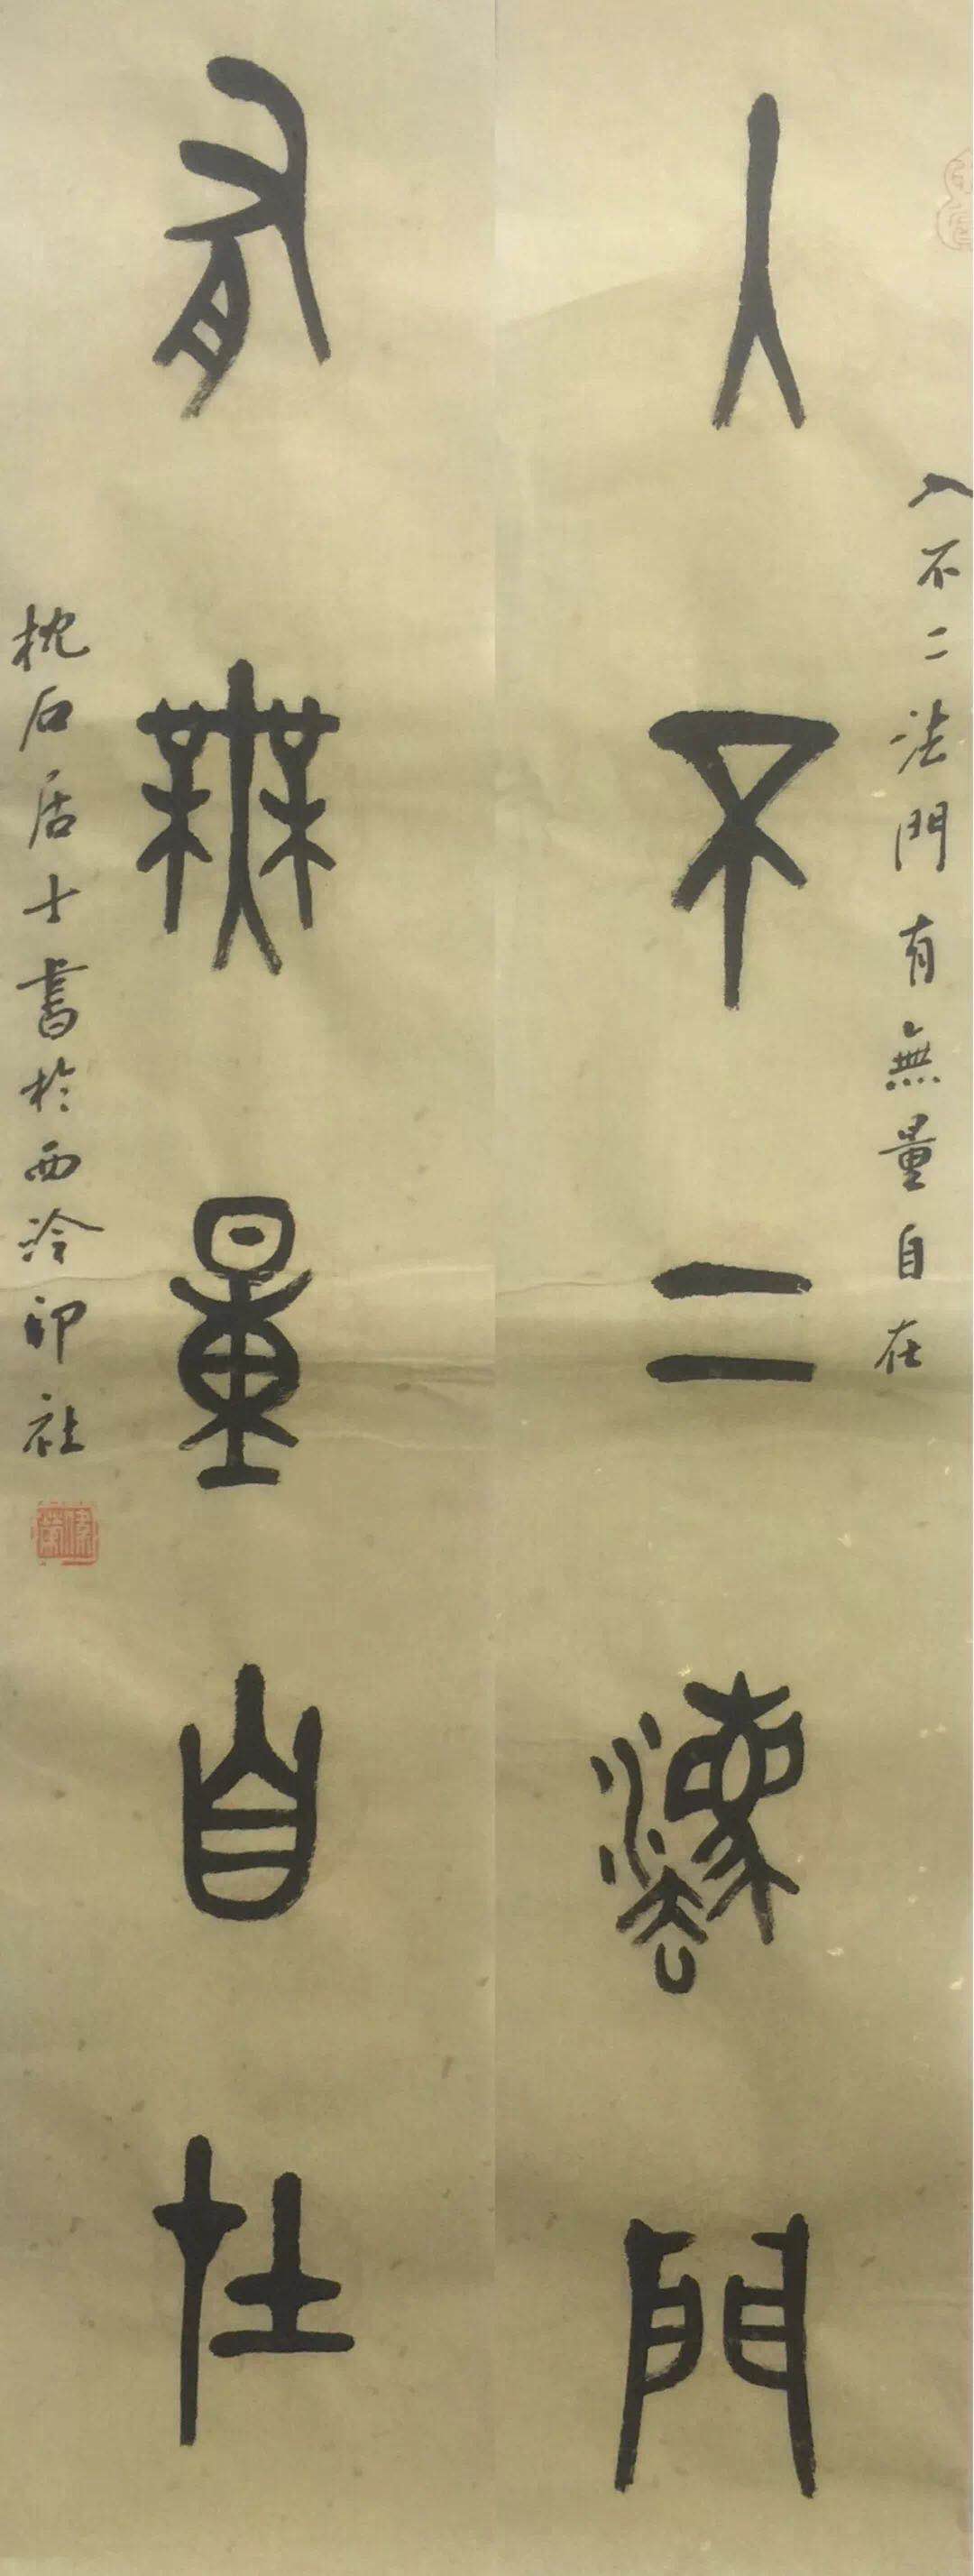 入不二法門有無量自在
入不二灋門
有無量自在
枕石居士書於西泠印社